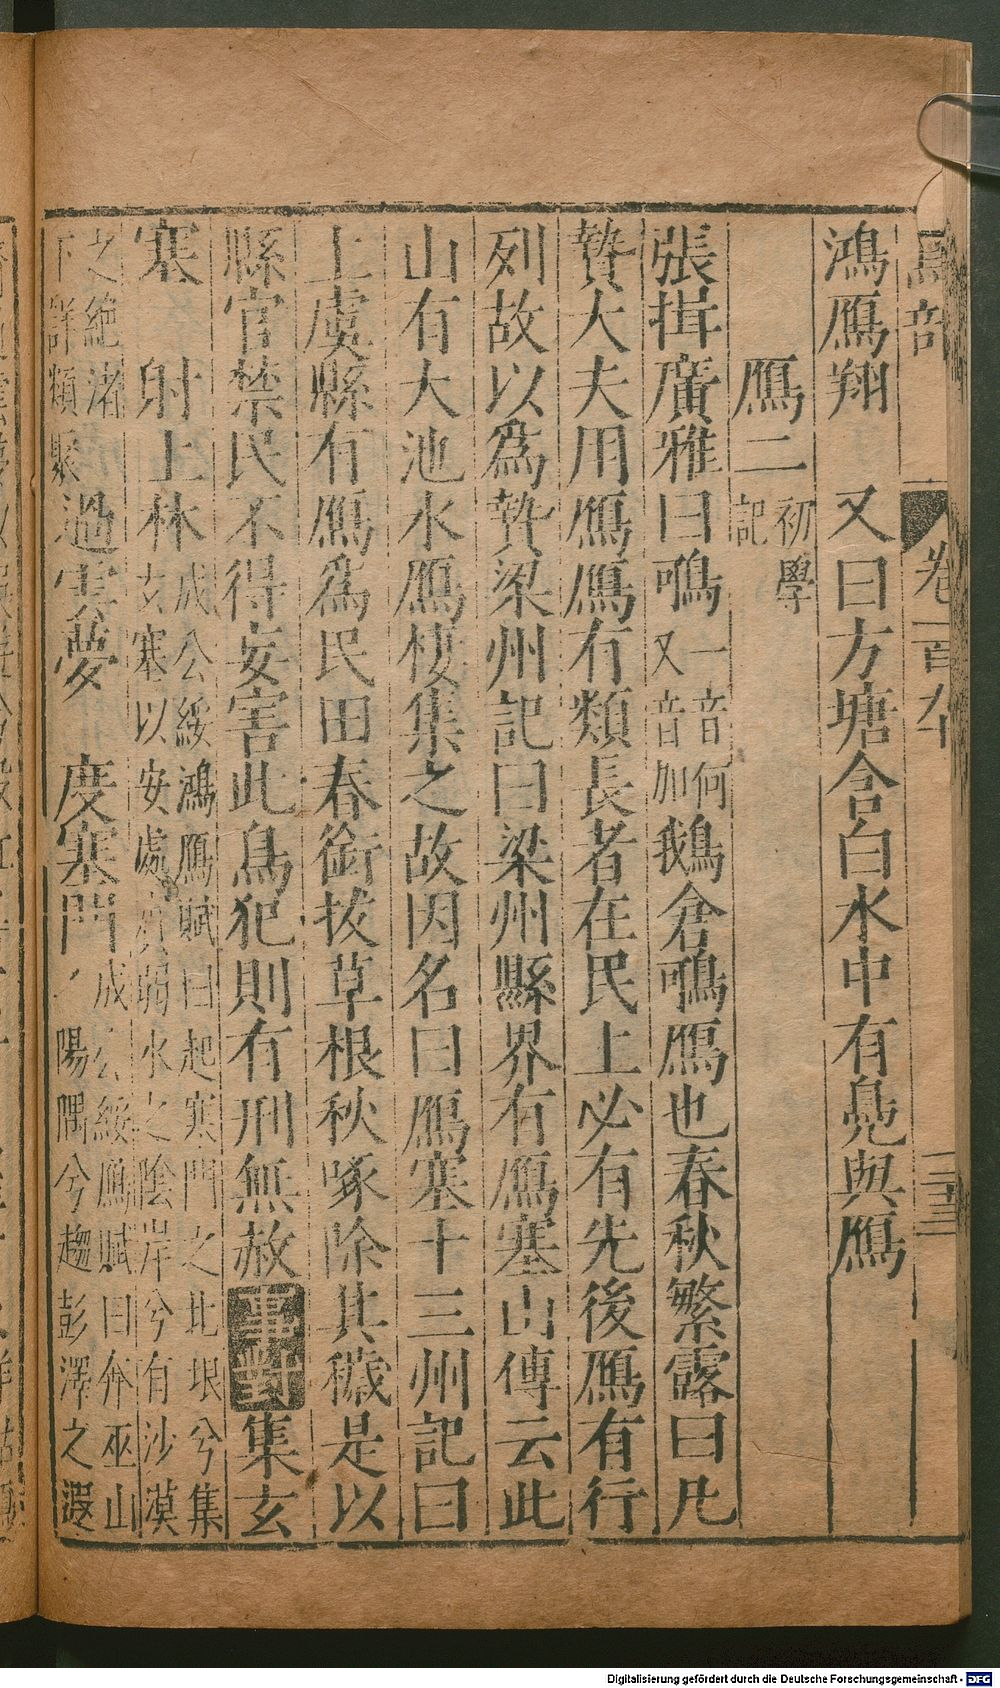 鳥部 卷一百六十 二十三
鴻鴈翔 又曰方塘含白水中有鳧與鴈
鴈二 初學記
張揖廣雅曰鳴 一音何又音加 鵝倉鳴鴈也春秋繁露曰凡
贄大夫用鴈鴈有類長者在民上必有先後鴈有行
列故以爲贄梁州記曰梁州縣界有鴈塞山傳云此
山有大池水鴈棲集之故因名曰鴈塞十三州記曰
上虞縣有鴈爲民田春銜拔草根秋啄除其穢是以
縣官禁民不得妄害此鳥犯則有刑無赦 事對 集玄
塞 射上林 成公綏鴻鴈賦曰起寒門之北垠兮集玄塞以安處賓弱水之陰岸兮有沙漠
之絕渚下詳類聚 過雲夢 度塞門 成公綏鴈賦曰奔巫山陽隅兮趨彭澤之遐
Digitalisierung gefördert durch die Deutsche Forschungsgemeinschaft - DFG